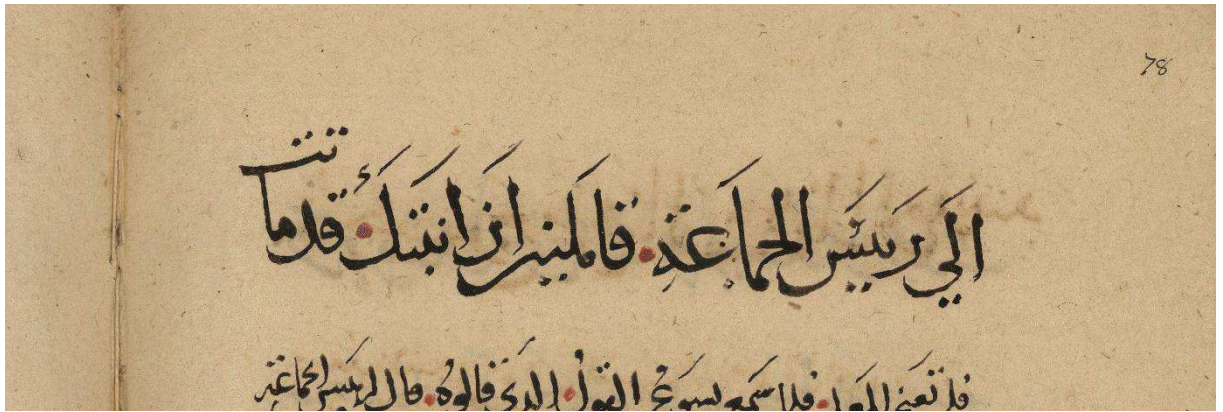 78
الي رييس الجماعة. قايلين ان ابنتك. قد ماتت
المعلم. فلما سمع يسوع القول. الذي قالوه. قال لرييس الجماعة